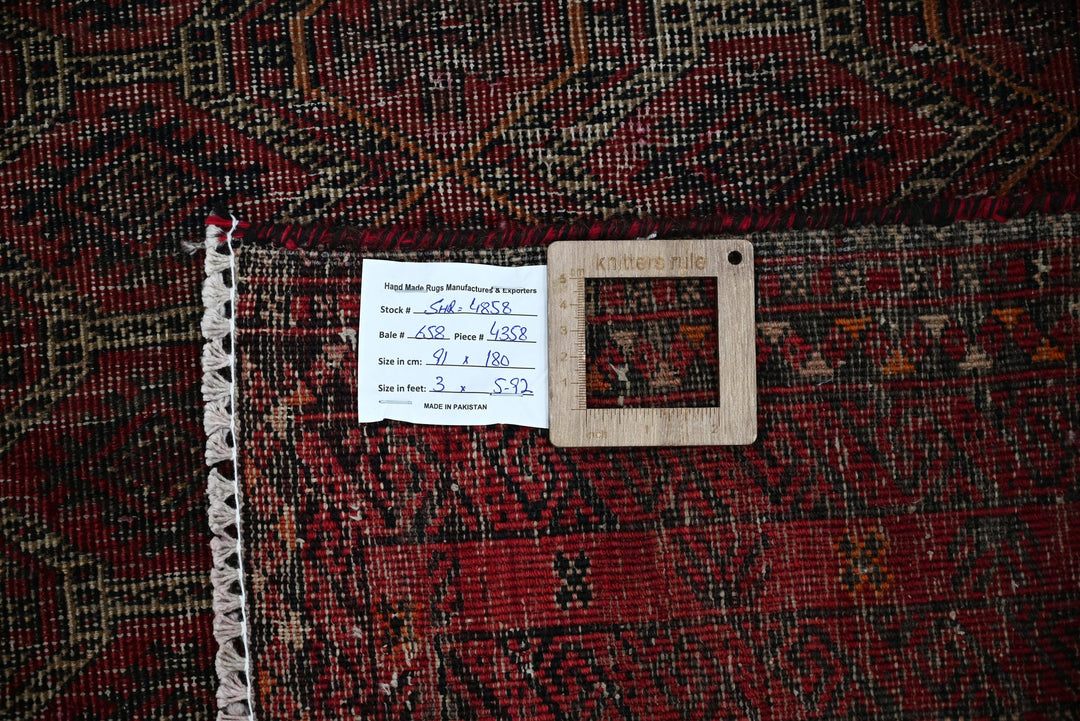 Hand Made Rugs Manufactures & Exporters
Stock # SHR= 4858
Bale # 658 Piece # 4358
Size in cm: 91 x 180
Size in feet: 3 x 5-92
MADE IN PAKISTAN
knitters rule
cm
5
4
3
2
1
inch 1 2